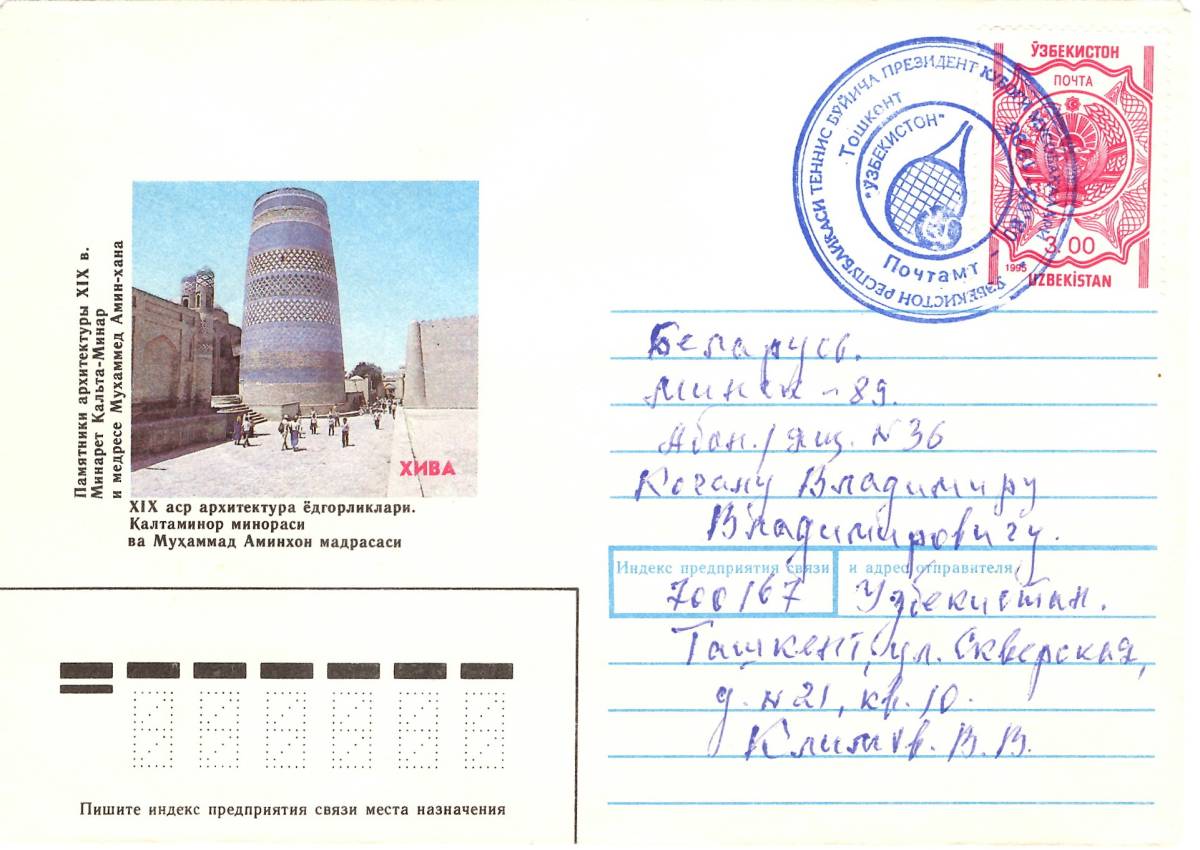 ЎЗБЕКИСТОН
ПОЧТА
3.00
1995
UZBEKİSTAN
ЎЗБЕКИСТОН РЕСПУБЛИКАСИ ТЕННИС БЎЙИЧА ПРЕЗИДЕНТ КУБОГИ
Тошкент
"ЎЗБЕКИСТОН"
Почтамт
Памятники архитектуры XIX в.
Минарет Кальта-Минар
и медресе Мухаммед Амин-хана
ХИВА
XIX аср архитектура ёдгорликлари.
Калтаминор минораси
ва Муҳаммад Аминхон мадрасаси
Беларусь.
Минск-89.
Абон./ящ. N36
Кочану Владимиру
Владимировичу.
Индекс предприятия связи и адрес отправителя
700167 Узбекистан.
Ташкент, ул. Скверская,
д. N21, кв. 10.
Климов. В.В.
Пишите индекс предприятия связи места назначения